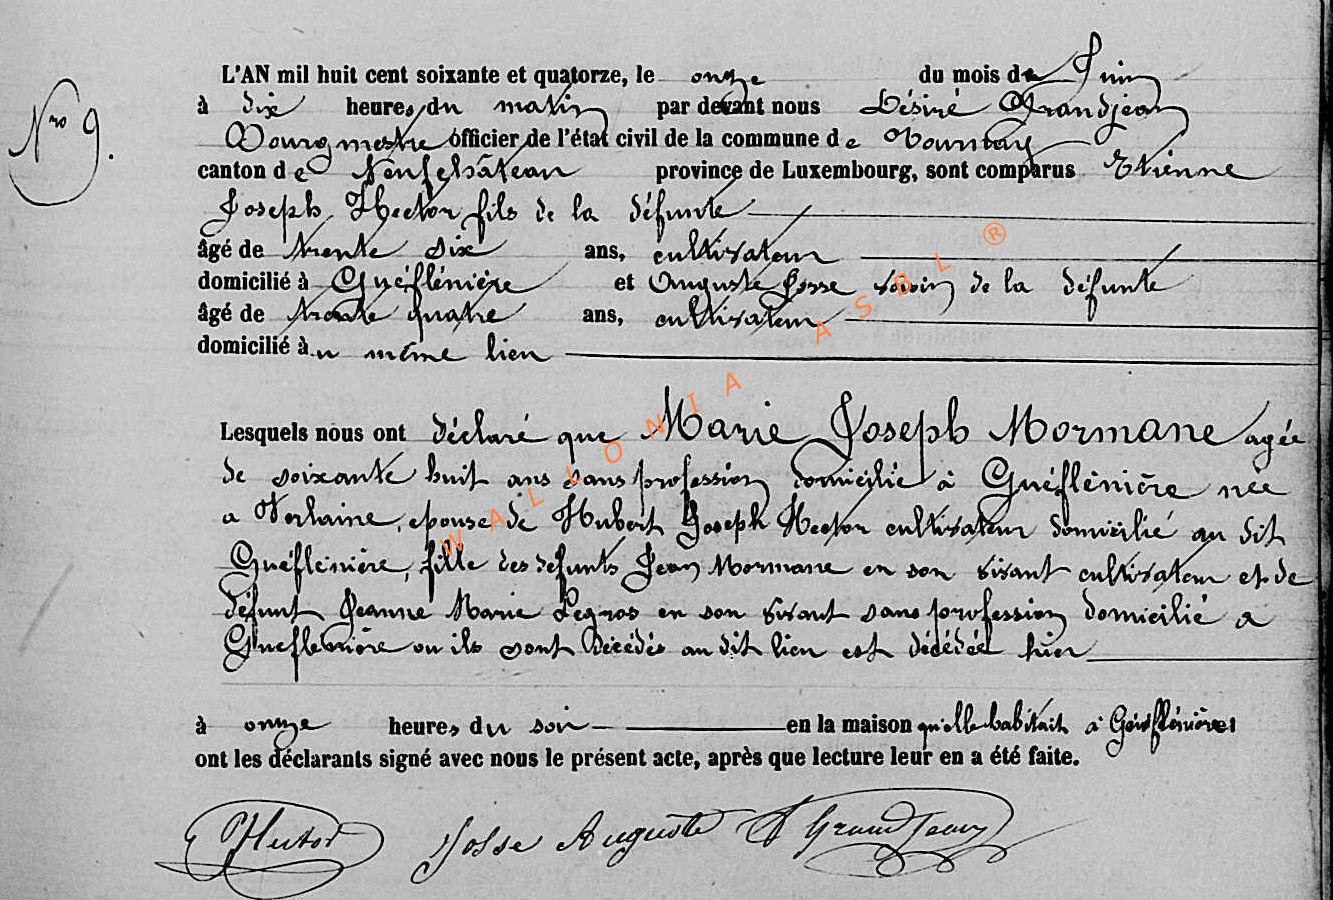 Nro 9.
L'AN mil huit cent soixante et quatorze, le onze du mois de Juin
à dix heures du matin par devant nous Désiré Grandjean
Bourgmestre officier de l'état civil de la commune de Tournay
canton de Neufchâteau province de Luxembourg, sont comparus Etienne
Joseph Hector fils de la défunte
âgé de trente six ans, cultivateur
domicilié à Guéflénière et Auguste Josse voisin de la défunte
âgé de trente quatre ans, cultivateur
domicilié àu même lieu
Lesquels nous ont déclaré que Marie Joseph Mormane agée
de soixante huit ans sans profession domicilié à Guéflénière née
a Verlaine, epouse de Hubert Joseph Hector cultivateur domicilié au dit
Guéflenière, fille des défunts Jean Mormane en son vivant cultivateur et de
défunt Jeanne Marie Legros en son vivant sans profession domicilié a
Gueflenière ou ils sont décédés au dit lieu est décédée hier
à onze heures du soir en la maison qu'elle habitait à
ont les déclarants signé avec nous le présent acte, après que lecture leur en a été faite.
Hector Josse Auguste D Grandjean
WALLONIA ASBL ®